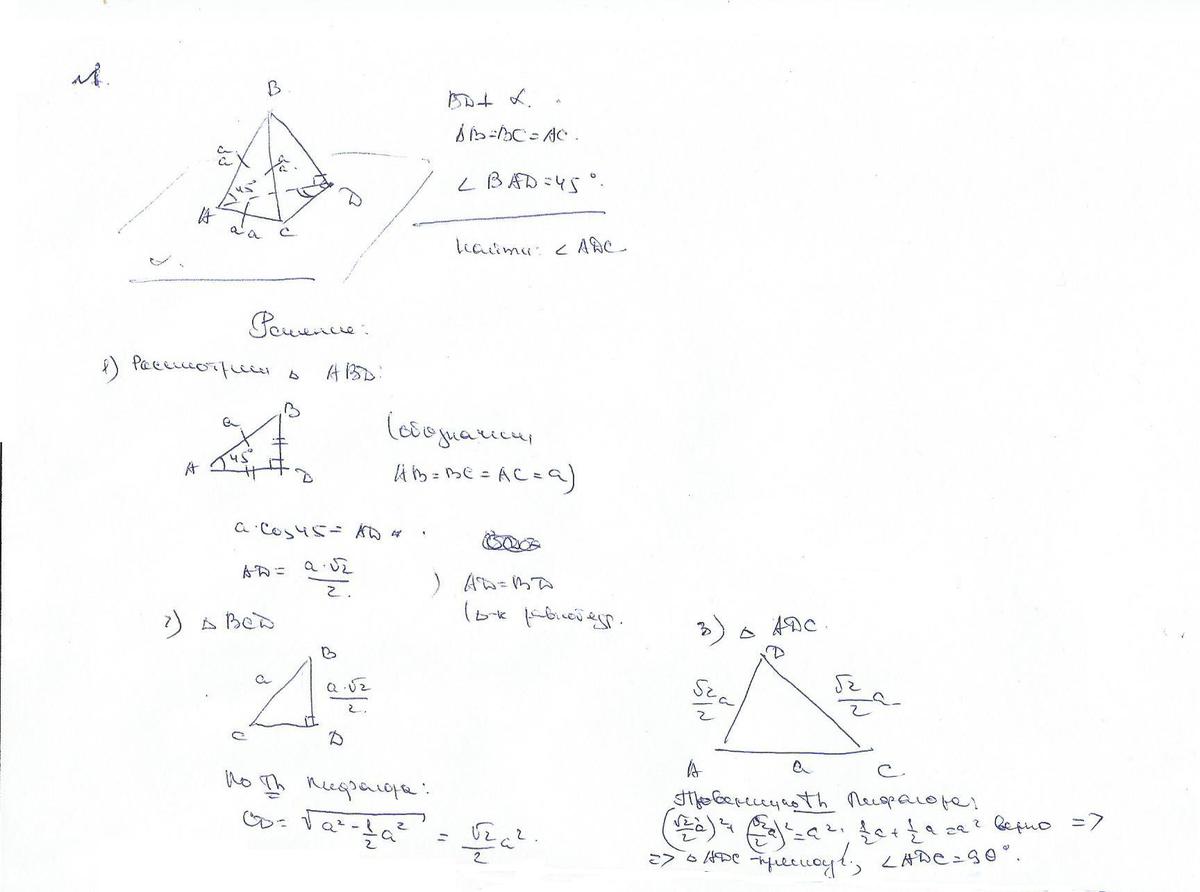 №1.
B
BD⊥ α.
AB=BC=AC.
∠ BAD=45°.
Найти: ∠ ADC
a
a
a
a
45°
A
D
a a
C
α.
Решение:
1) Рассмотрим △ ABD:
B
a
45°
A
D
(обозначим,
AB=BC=AC=a)
a·cos45=AD
AD= a·√2/2.
) AD=BD
(△-к равнобедр.
2) △ BCD
B
a
a·√2/2.
C
D
По Th Пифагора:
CD= √(a²-1/2a²) = √2/2 a².
3) △ ADC.
D
√2/2 a
√2/2 a
A
a
C.
Th Пифагора:
(√2/2 a)²+(√2/2 a)²=a²; 1/2a+1/2a=a² верно =>
=> △ ADC-прямоуг., ∠ADC=90°.